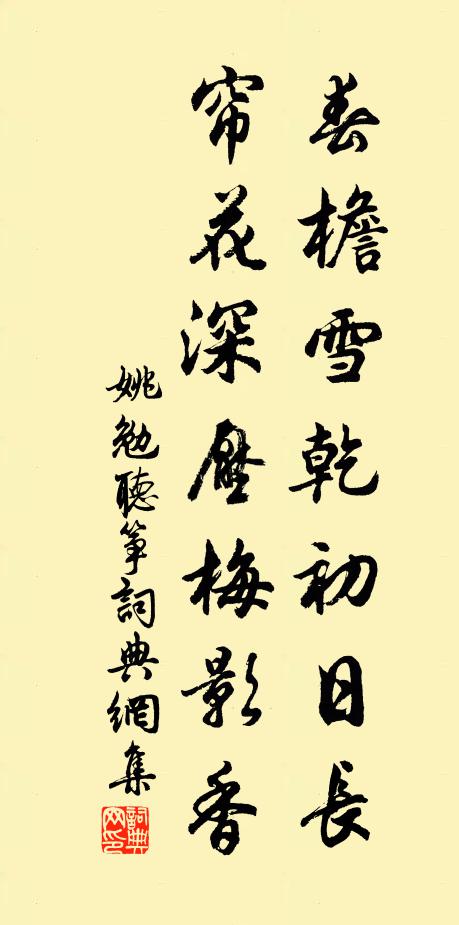 春檐雪乾初日長
帘花深壓梅影香
姚勉聽筝詞典網集
詞典網印